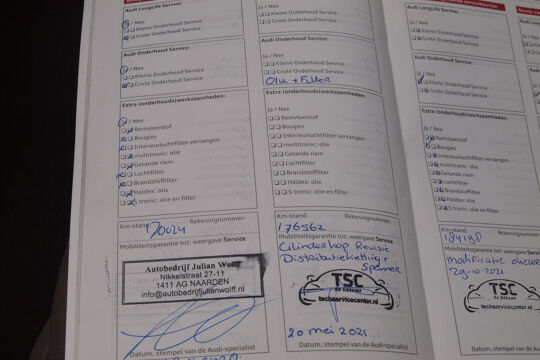 Audi LongLife Service:
/ Nee
Kleine Onderhoud Service
Grote Onderhoud Service
Audi Onderhoud Service:
/ Nee
Kleine Onderhoud Service
Grote Onderhoud Service
Extra (onderhouds)werkzaamheden:
/ Nee
Remvloeistof
Bougies
Interieurluchtfilter vervangen
multitronic: olie
Getande riem
Luchtfilter
Brandstoffilter
Haldex: olie
S tronic: olie en filter
Km-stand: Rekeningnummer:
170024
Mobiliteitsgarantie tot: weergave Service
Autobedrijf Julian Wolff
Nikkelstraat 27-11
1411 AG NAARDEN
info@autobedrijfjulianwolff.nl
Datum, stempel van de Audi-specialist
Ja / Nee
Kleine Onderhoud Service
Grote Onderhoud Service
Audi Onderhoud Service:
Ja / Nee
Kleine Onderhoud Service
Grote Onderhoud Service
Olie + Filter
Extra (onderhouds)werkzaamheden:
Ja / Nee
Remvloeistof
Bougies
Interieurluchtfilter vervangen
multitronic: olie
Getande riem
Luchtfilter
Brandstoffilter
Haldex: olie
S tronic: olie en filter
Km-stand: Rekeningnummer:
176562
Mobiliteitsgarantie tot: weergave Service
Cilinderkop Revisie
Distributieketting +
Spanner
TSC
de Betuwe
techservicecenter.nl
20 mei 2021
Datum, stempel van de Audi-specialist
Audi LongLife Service:
Ja / Nee
Kleine Onderhoud Service
Grote Onderhoud Service
Audi Onderhoud Service:
Ja / Nee
Kleine Onderhoud Service
Grote Onderhoud Service
Extra (onderhouds)werkzaamheden:
Ja / Nee
Remvloeistof
Bougies
Interieurluchtfilter vervangen
multitronic: olie
Getande riem
Luchtfilter
Brandstoffilter
Haldex: olie
S tronic: olie en filter
Km-stand: Rekeningnummer:
Mobiliteitsgarantie tot: weergave Service
29-10-2021
TSC
de Betuwe
techservicecenter.nl
Datum, stempel van de Audi-specialist